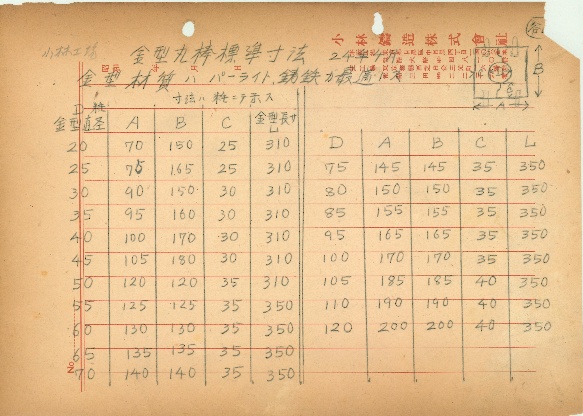 小林鑄造株式會社
小林工場 金型丸棒標準寸法
金型材質ハパーライト鋳鉄カ最適トス
寸法ハ粍ニテ示ス
D粍
金型直径 A B C 金型長サL
20 70 150 25 310
25 75 165 25 310
30 90 150 30 310
35 95 160 30 310
40 100 170 30 310
45 105 180 30 310
50 120 120 35 310
55 125 125 35 350
60 130 130 35 350
65 135 135 35 350
70 140 140 35 350
D A B C L
75 145 145 35 350
80 150 150 35 350
85 155 155 35 350
95 165 165 35 350
100 170 170 35 350
105 185 185 40 350
110 190 190 40 350
120 200 200 40 350
B
A
No.